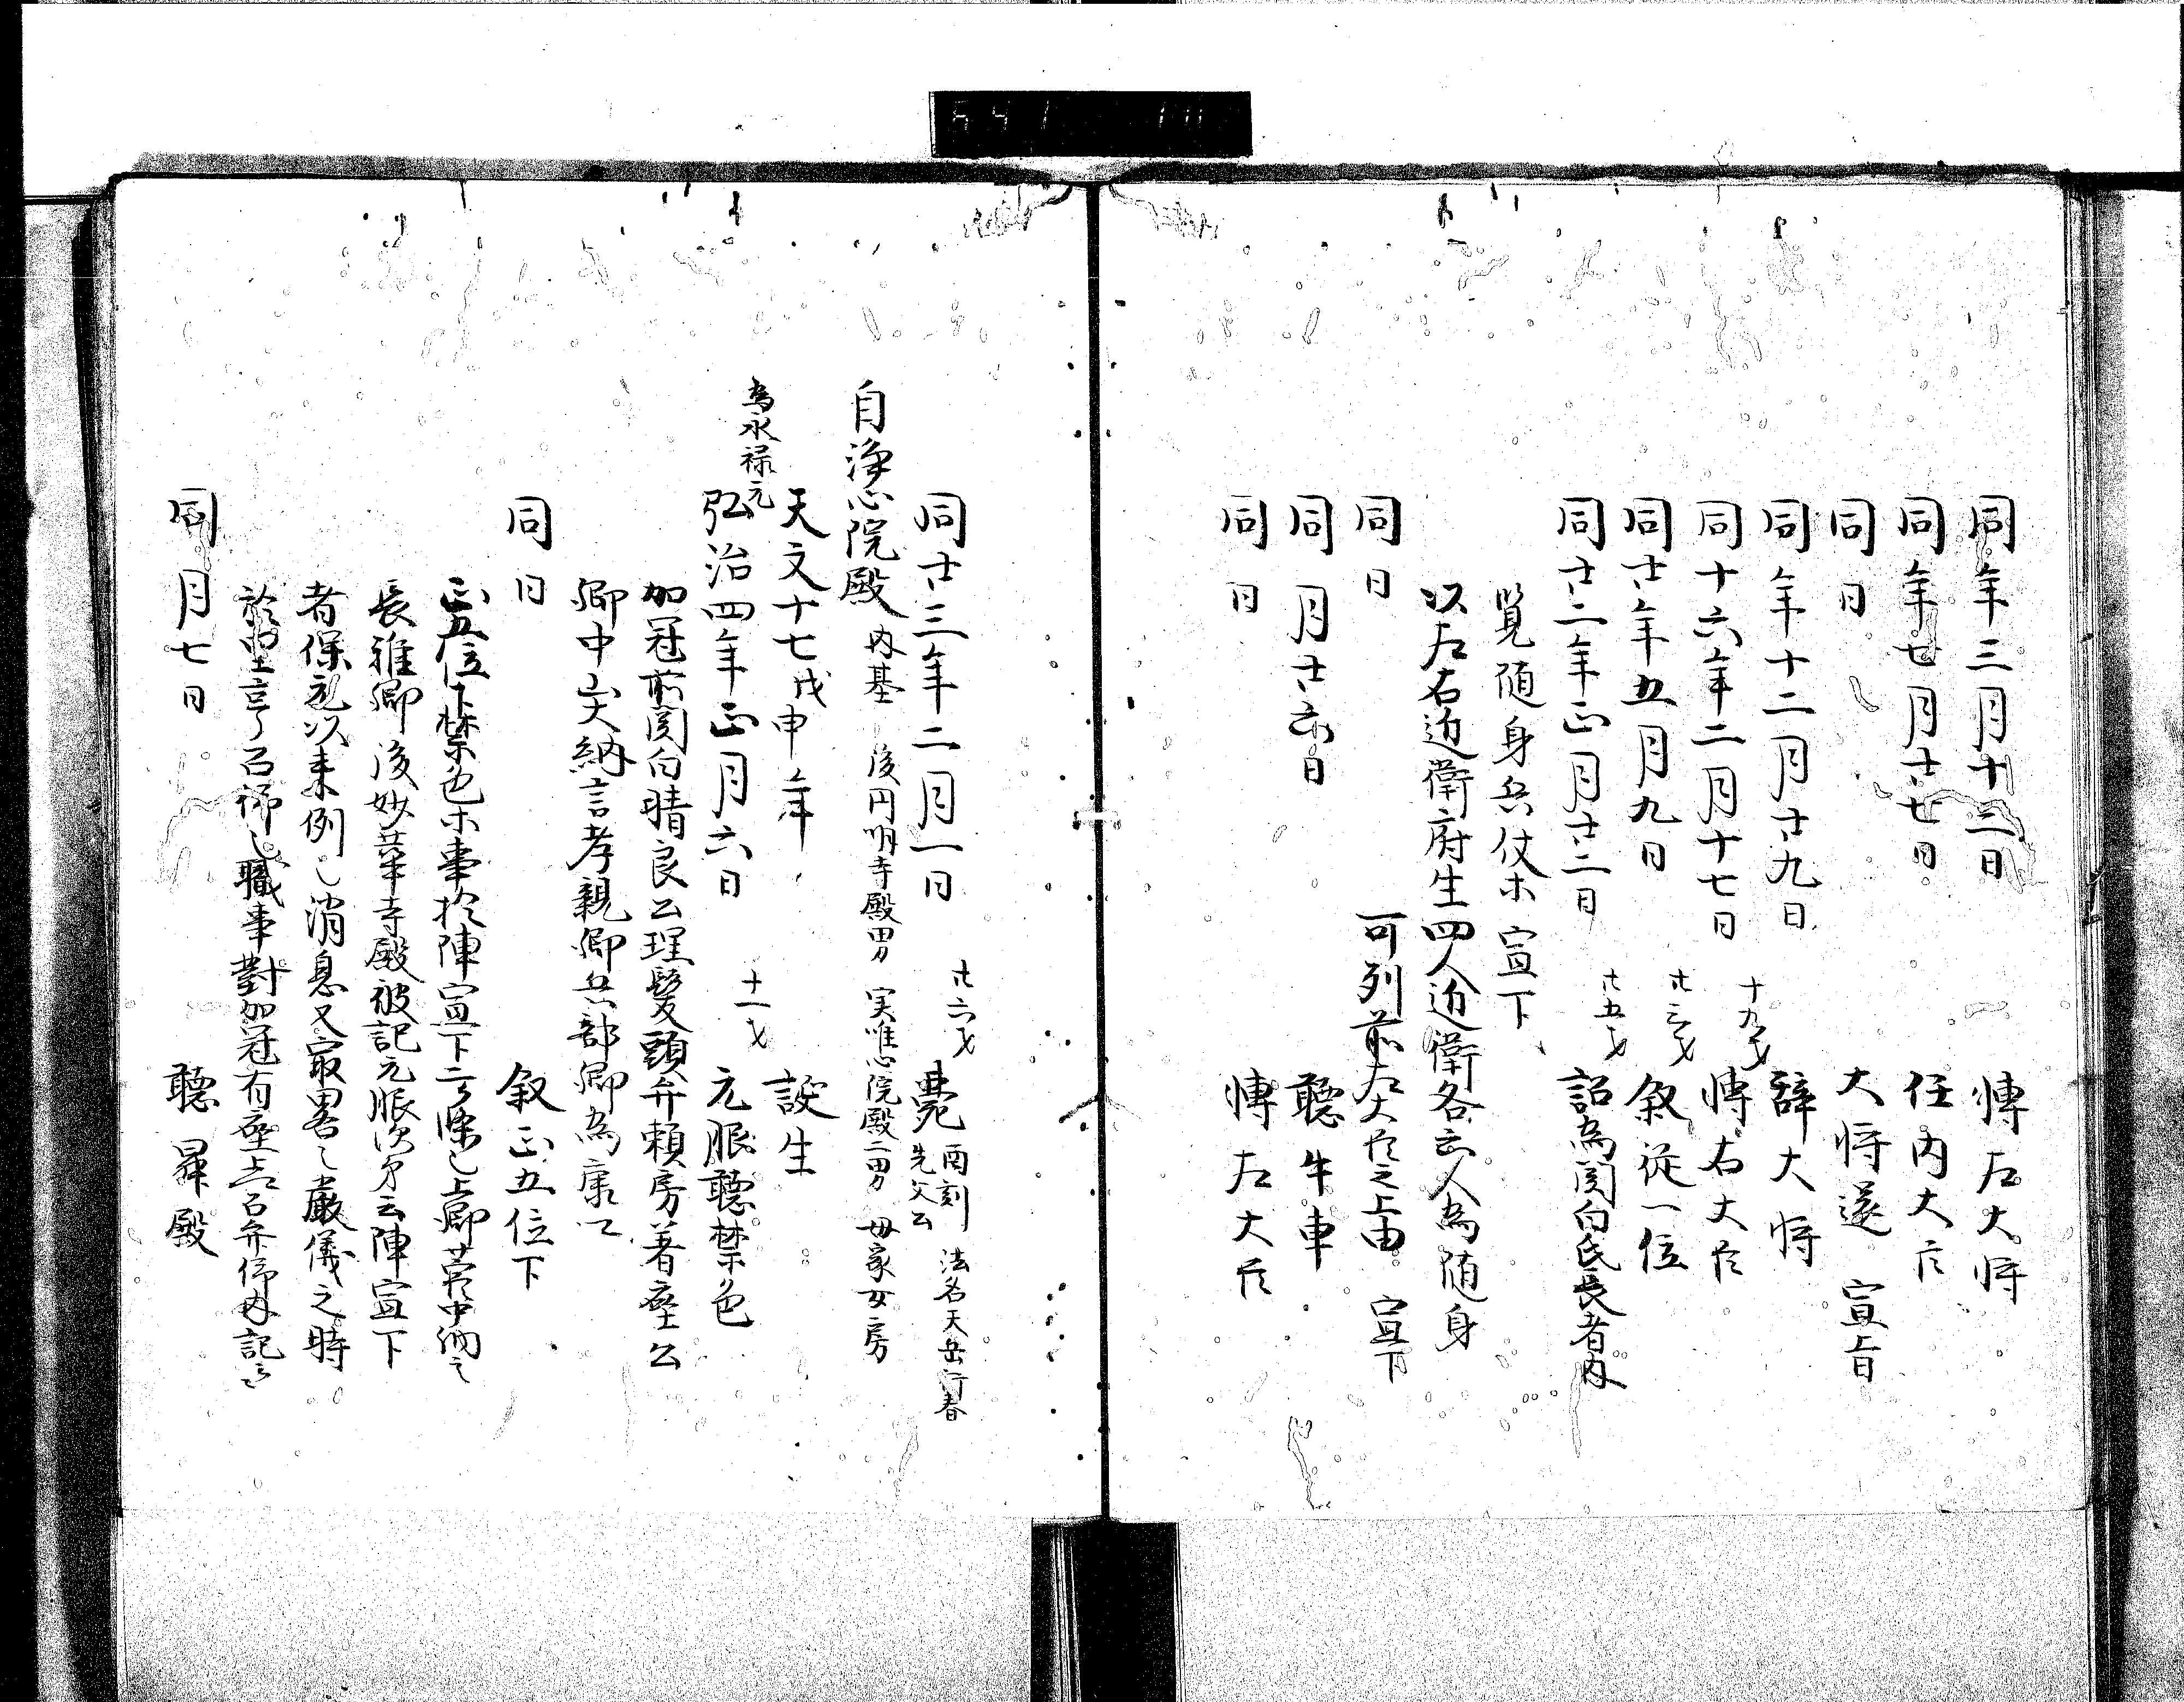 同年三月十三日　轉左大将
同年七月廿七日　任内大臣
同日　大将送　宣旨
同年十二月廿九日　辞大将
同十六年二月十七日　十九才　轉右大臣
同廿年五月九日　廿三才　叙従一位
同廿二年正月廿二日　廿五才　詔為関白氏長者内
覧随身兵仗木　宣下
以左右近衛府生四人近衛各云人為随身
同日　可列前左大臣之上由　宣下
同月廿六日　聴牛車
同日　轉左大臣
同廿三年二月一日　廿六才　薨　酉刻　先父公　法名天岳行春
自浄心院殿　内基　後円明寺殿男　実唯心院殿二男　母家女房
天文十七戊申年　誕生
為永禄元
弘治四年正月六日　十一才　元服聴禁色
加冠前関白晴良公理髪頭弁頼房着座公
卿中山大納言孝親卿兵部卿為康
同日　叙正五位下
正五位下禁色木事於陣宣下
長雅卿後妙華寺殿被記元服次第云陣宣下
者保元以来例也消息又最略之厳儀之時
職事對加冠有座上召弁仰内記云
同月七日　聴昇殿